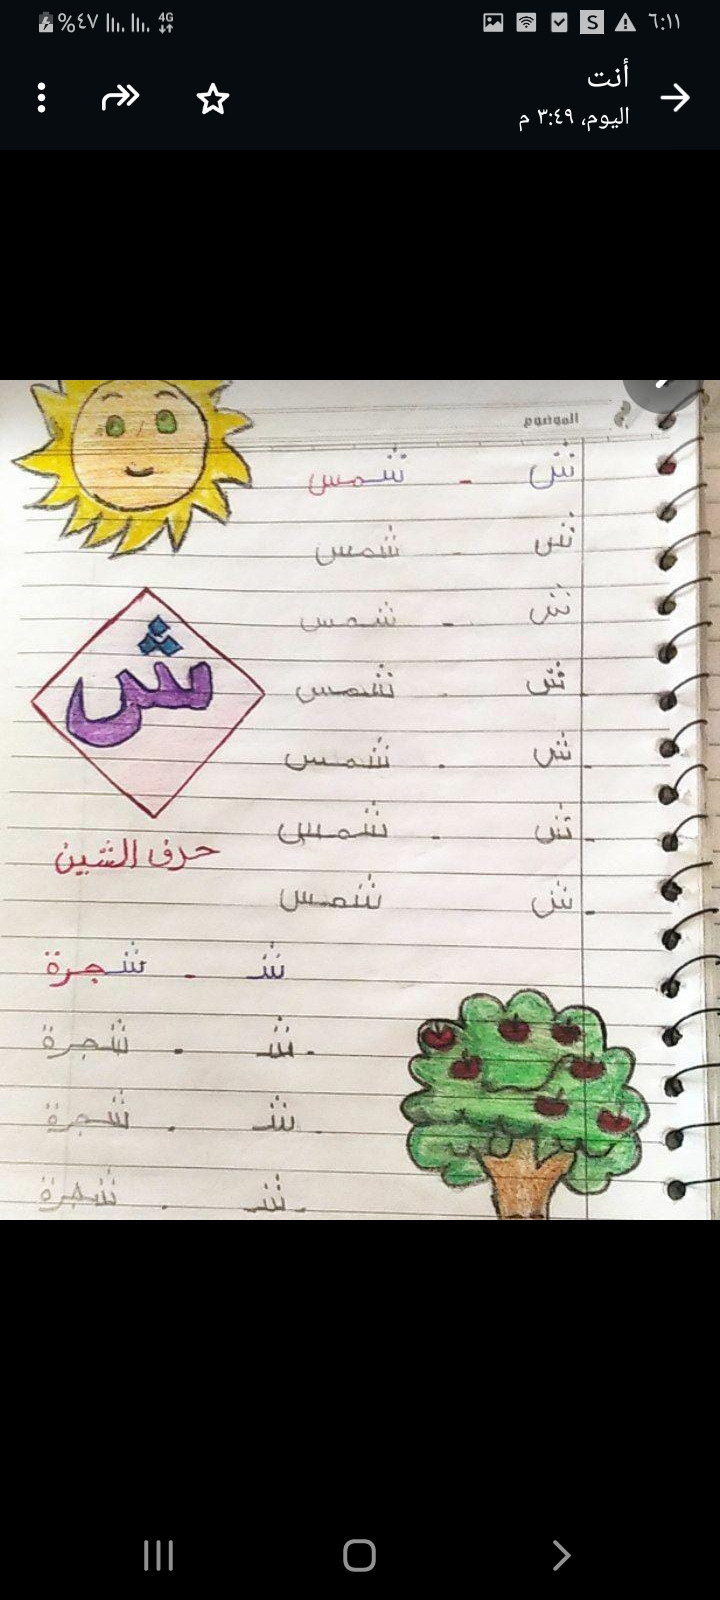 ٦:١١
%٤٧
4G
S
أنت
اليوم، ٣:٤٩ م
الموضوع
ش - شمس
ش - شمس
ش - شمس
ش . شمس
ش . شمس
ش . شمس
ش شمس
ش
حرف الشين
شـ - شجرة
شـ . شجرة
شـ . شجرة
شـ . شجرة